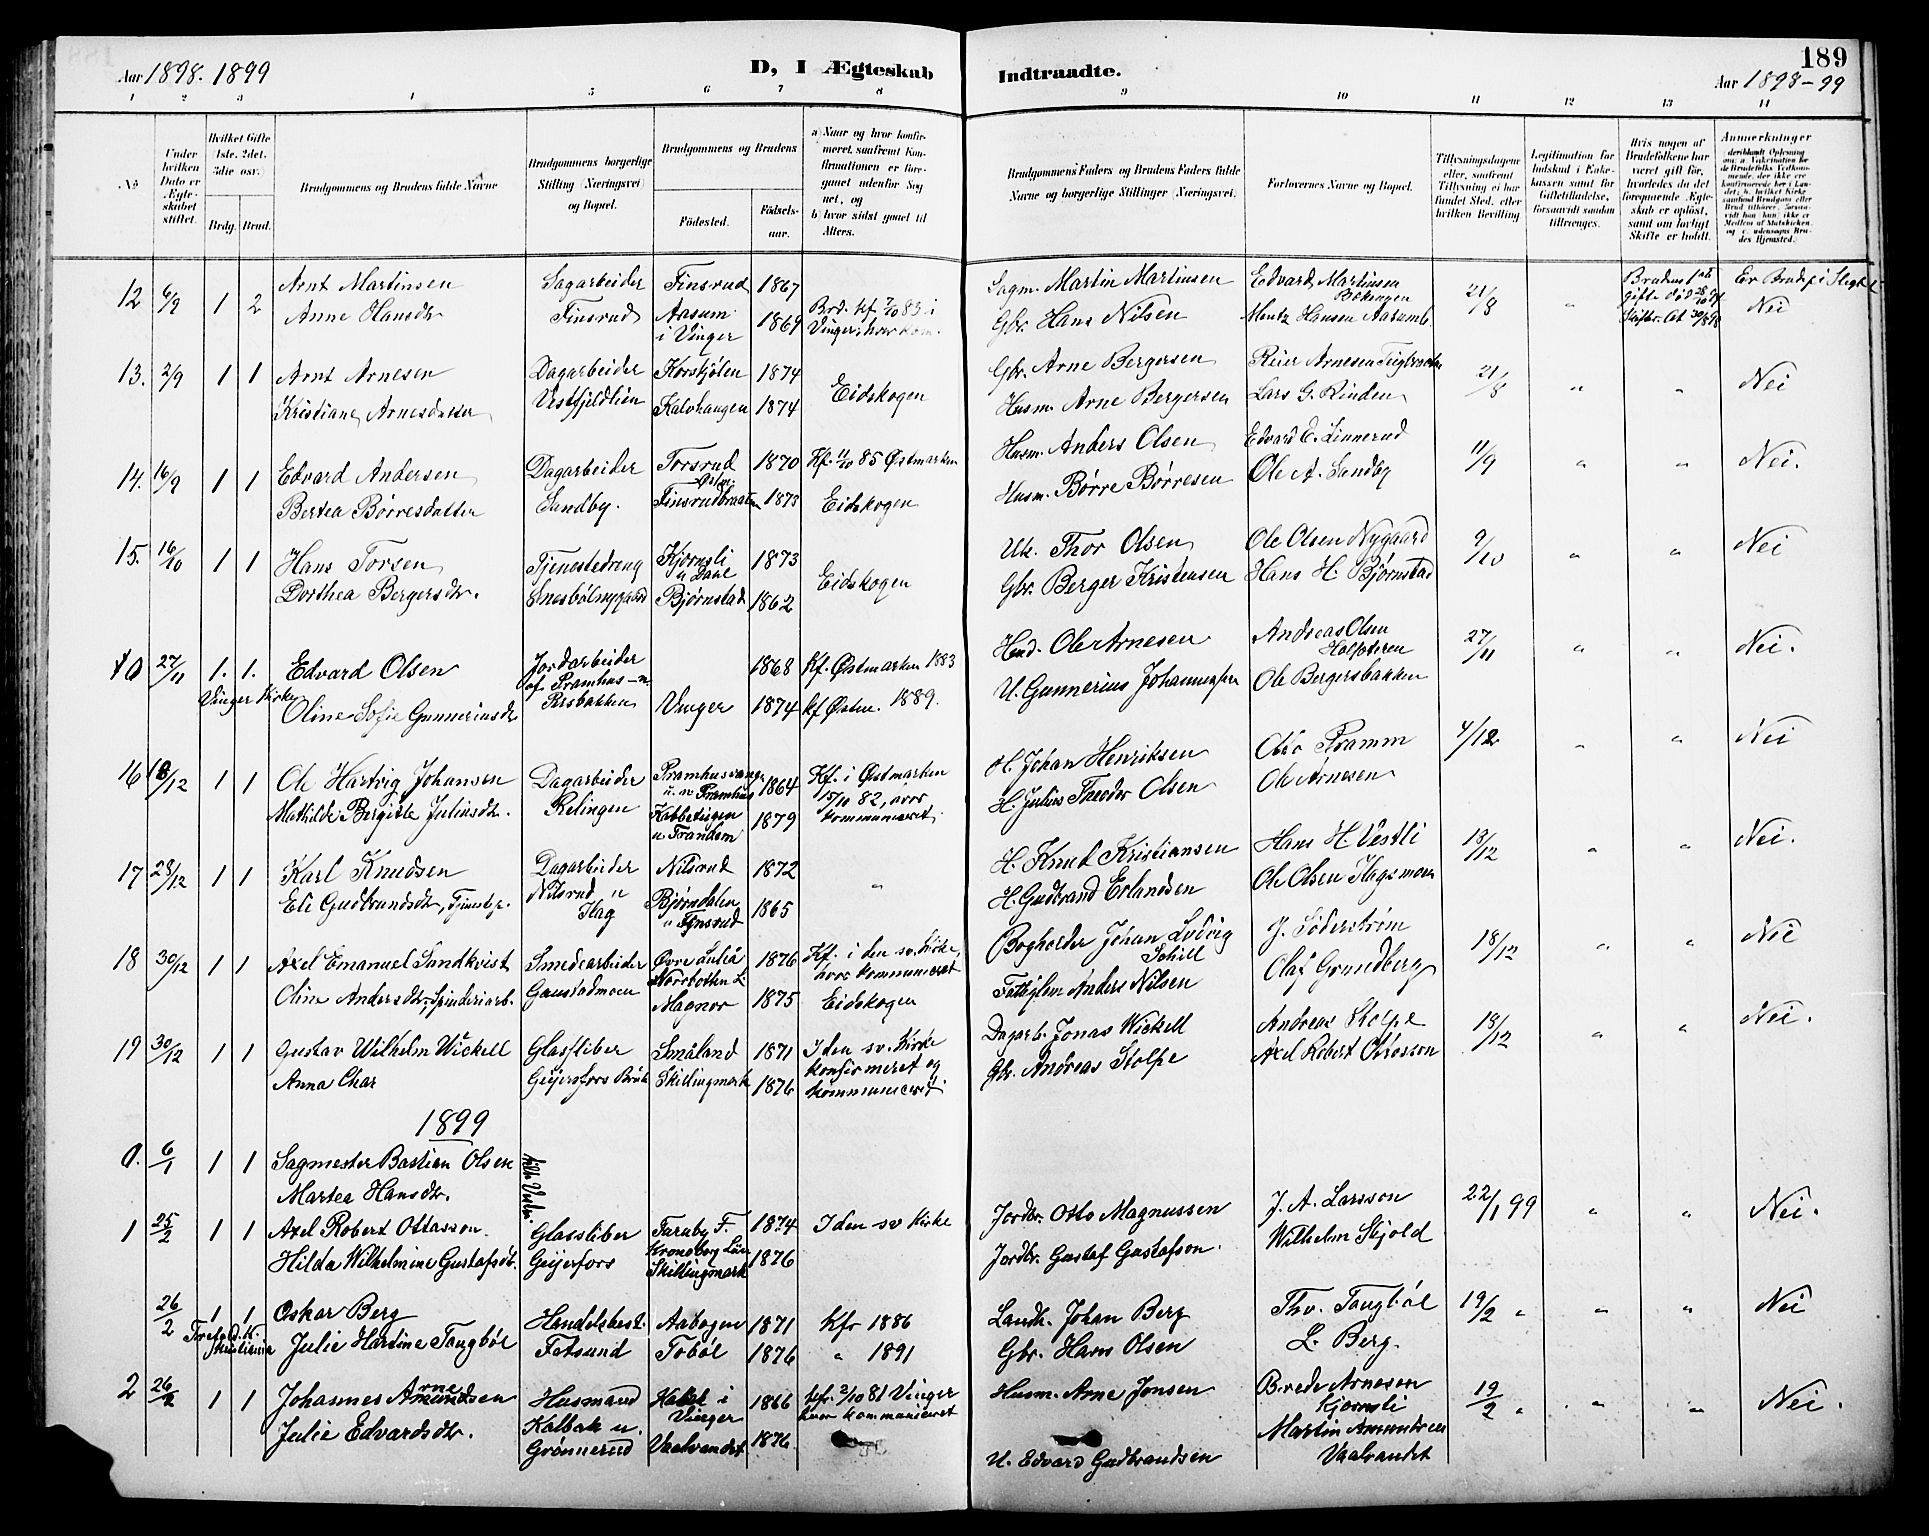 Aar 1898. 1899
D, I Ægteskab
Indtraadte.
189
Aar 1898-99
1 2 3 4 5 6 7 8 9 10 11 12 13 14
No
Under hvilken Dato er Ægteskabet stiftet.
Hvilket Gifte 1ste, 2det, 3die osv.
Brdg. Brud.
Brudgommens og Brudens fulde Navne
Brudgommens borgerlige Stilling (Næringsvei) og Bopæl.
Brudgommens og Brudens
Fødested.
Fødsels-aar.
a) Naar og hvor konfirmeret, saafremt Konfirmationen er foregaaet udenfor Sognet, og
b) hvor sidst gaaet til Alters.
Brudgommens Faders og Brudens Faders fulde Navne og borgerlige Stillinger (Næringsvei).
Forlovernes Navne og Bopæl.
Tillysningsdagene eller, saafremt Tillysning ei har fundet Sted, efter hvilken Bevilling
Legitimation for Indskud i Enkekassen samt for Giftetilladelse, forsaavidt saadan tiltrænges.
Hvis nogen af Brudefolkene har været gift før, hvorledes da det foregaaende Ægteskab er opløst, samt om lovligt Skifte er holdt.
Anmerkninger
12 6/9 1 2 Arnt Martinsen Sagarbeider Finsrud 1867
Anne Hansdr Finsrud Aasum i Vinger 1869 Brd. kf. 7/10 83 i Vinger, hvor kom.
Sagm. Martin Martinsen Edvard Martinsen 21/8 " Er Brudef. i Slegt
Gbr. Hans Nilsen Mentz Hansen Aasumb. Nei
13. 2/9 1 1 Arnt Arnesen Dagarbeider Korskjølen 1874
Kristiane Arnesdatter Vestfjeldlien Kalvhaugen 1874 Eidskogen
Gbr. Arne Bergersen Reier Arnesen 21/8 " " Nei
Husm. Arne Bergersen Lars G. Rinden
14. 16/9 1 1 Edvard Andersen Dagarbeider Torsrud 1870 Kf. 11/10 85 Østmarken
Bertea Børresdatter Sandby. Finsrudbraaten 1873 Eidskogen
Husm. Anders Olsen Edvard E. Linnerud 11/9 " " Nei.
Husm. Børre Børresen Ole A. Sandby
15. 16/10 1 1 Hans Torsen Tjenestedreng Kjørnsli u Dahl 1873
Dorthea Bergersdr. Bjørnstad 1862 Eidskogen
Uk. Thor Olsen Ole Olsen Nygaard 9/10 " " Nei
Gbr. Berger Kristensen Hans H. Bjørnstad
0 27/11 1. 1. Edvard Olsen Jordarbeider af Pramhus 1868 Kf. Østmarken 1883
Vinger Kirke Oline Sofie Gunneriusdr Persbakken Vinger 1874 kf Østm. 1889.
Ole Arnesen Andreas Olsen 27/11 " " Nei.
U. Gunnerius Johannessen Ole Bergersbakken
16 18/12 1 1 Ole Hartvig Johansen Dagarbeider 1864 Kf. i Østmarken
Mathilde Bergitte Juliusdr. Relingen 1879 15/10 82, hvor kommuniceret.
H. Johan Henriksen Otto Pramm 4/12 " " Nei
H. Julius Theodor Olsen Ole Arnesen
17 28/12 1 1 Karl Knudsen Dagarbeider Nilsrud 1872
Eli Gudbrandsdr, Tjenestp. Nilsrud u Flag Bjørsdalen 1865 "
H. Knud Kristiansen Hans H. Vestli 18/12 " " Nei.
H. Gudbrand Erlandsen Ole Olsen Flagsmoen
18 30/12 1 1 Axel Emanuel Sandkvist Smedearbeider Øvre Luleå 1876 Kf. i den sv. Kirke, hvor kommuniceret
Oline Andersdr, Spinderiarb. Gaustadmoen Magnor 1875 Eidskogen
Bogholder Johan Ludvig J. Söderström 18/12 " " Nei
Anders Nilsen Olaf Grundberg
19 30/12 1 1 Gustav Wilhelm Wickell Glassliber Småland 1871 I den sv. Kirke konfirmeret og
Anna Char Geijersfors Bruk Skillingmark 1876 kommuniceret
Dagarb. Jonas Wickell Andreas Stolpe 18/12 " " Nei.
Gbr. Andreas Stolpe Axel Robert Ottosson
1899
0. 6/1 1 1 Sagmester Bastian Olsen
Martea Hansdr.
1 25/2 1 1 Axel Robert Ottasson Glassliber 1874 I den sv Kirke
Hilda Wilhelmine Gustafsdr. Geijerfors Kronoberg Län Skillingmark 1876
Jordbr. Otto Magnussen J. A. Larsson 22/1 99 " " Nei.
Jordbr. Gustaf Gustafson. Wilhelm Skjold
26/2 1 1 Oskar Berg Handelsbest. Aabogen 1871 Kfr 1886
Julie Hartine Taugbøl Fetsund Tobøl 1876 " 1891
Landh. Johan Berg Thv. Taugbøl 19/2 " " " Nei
Gbr. Hans Olsen L. Berg.
2 26/2 1 1 Johannes Arnesen Husmand i Vinger 1866 kfr. 2/10 81 Vinger hvor kommuniceret
Julie Edvardsdr. Kalbak u. Grønnerud Vaalvandet 1876
Husm. Arne Jonsen Brede Arnesen Kjørnsli 19/2 " " " Nei.
U. Edvard Gudbrandsen Martin Amundsen Vaalvandet